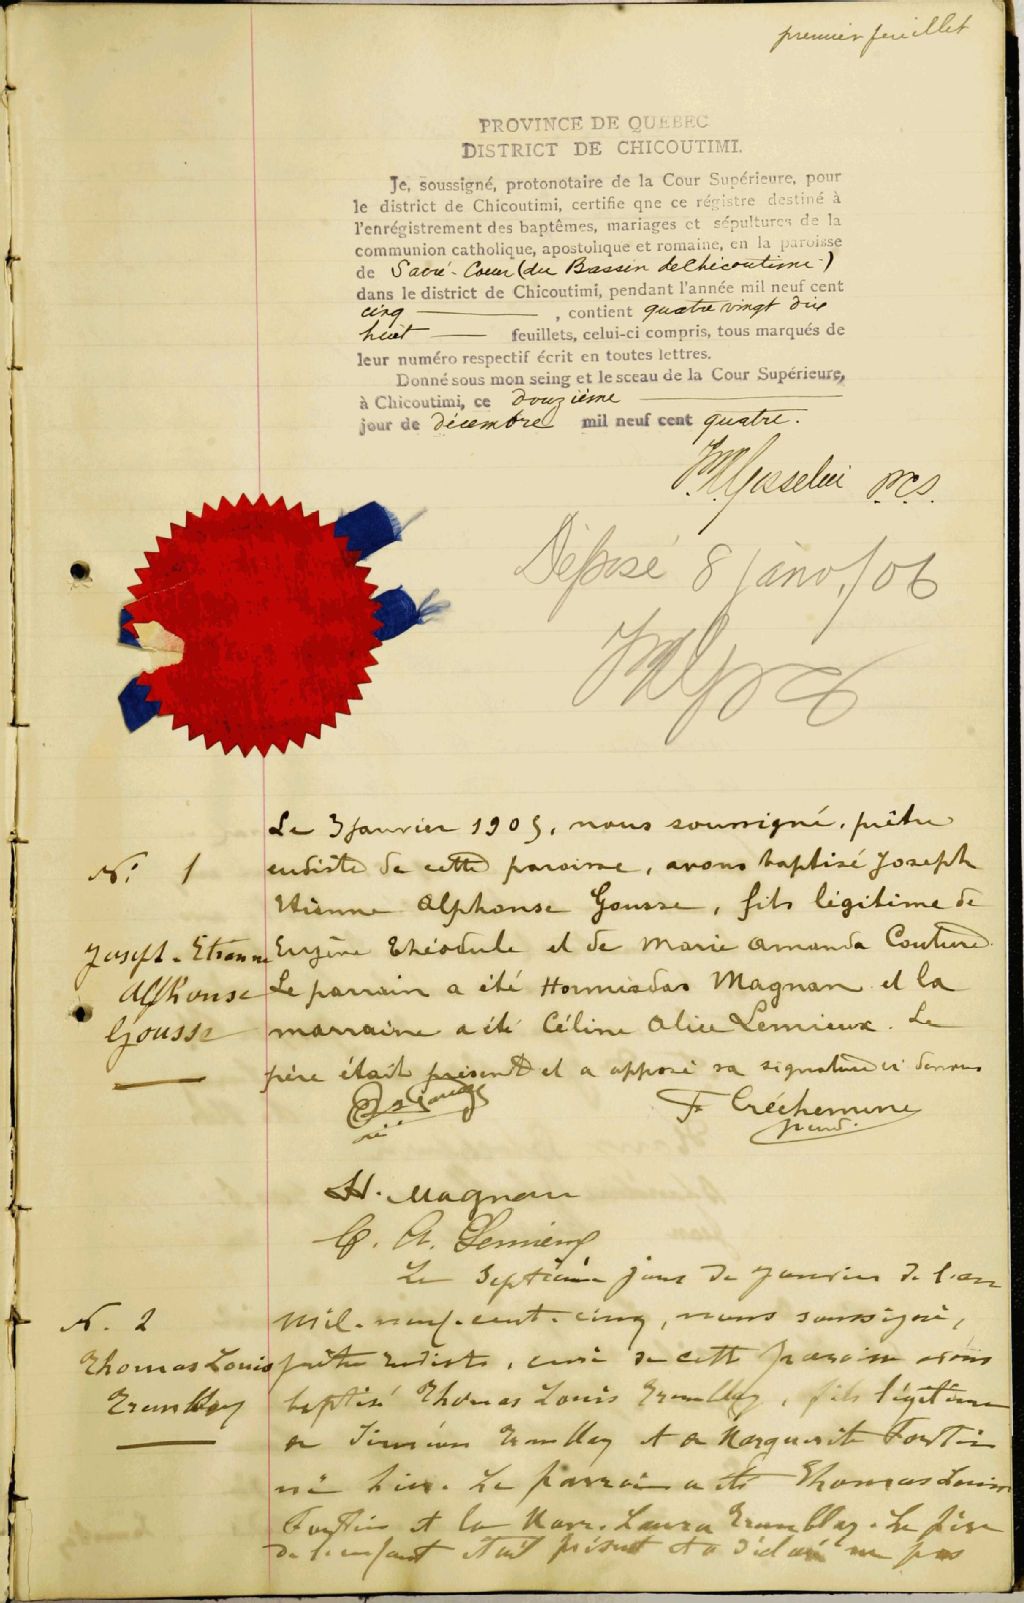 premier feuillet
PROVINCE DE QUEBEC
DISTRICT DE CHICOUTIMI.
Je, soussigné, protonotaire de la Cour Supérieure, pour
le district de Chicoutimi, certifie qne ce régistre destiné à
l'enrégistrement des baptêmes, mariages et sépultures de la
communion catholique, apostolique et romaine, en la paroisse
de Sacré-Coeur (du Bassin de Chicoutimi)
dans le district de Chicoutimi, pendant l'année mil neuf cent
cinq , contient quatre vingt dix
huit feuillets, celui-ci compris, tous marqués de
leur numéro respectif écrit en toutes lettres.
Donné sous mon seing et le sceau de la Cour Supérieure,
à Chicoutimi, ce douzième
jour de décembre mil neuf cent quatre.
Gosselin p.c.s.
Déposé 8 janv./06
Le 3 janvier 1905, nous soussigné, prêtre
N° 1
eudiste de cette paroisse, avons baptisé Joseph
Etienne Alphonse Gousse, fils légitime de
Joseph-Etienne
Eugène Théodule et de Marie Amanda Couture.
Alphonse
Le parrain a été Hormisdas Magnan et la
Gousse
marraine a été Céline Alice Lemieux. Le
père était présent et a apposé sa signature ci dessous
F. Tréhemene
H. Magnan
C. A. Lemieux
Le septième jour de janvier de l'an
N. 2
mil-neuf-cent-cinq, nous soussigné,
Thomas Louis
prêtre eudiste, curé de cette paroisse avons
Tremblay
baptisé Thomas Louis Tremblay, fils légitime
de Siméon Tremblay et de Marguerite Fortin
né hier. Le parrain a été Thomas Louis
Fortin et la Marr. Laura Tremblay. Le père
de l'enfant était présent et a déclaré ne pas